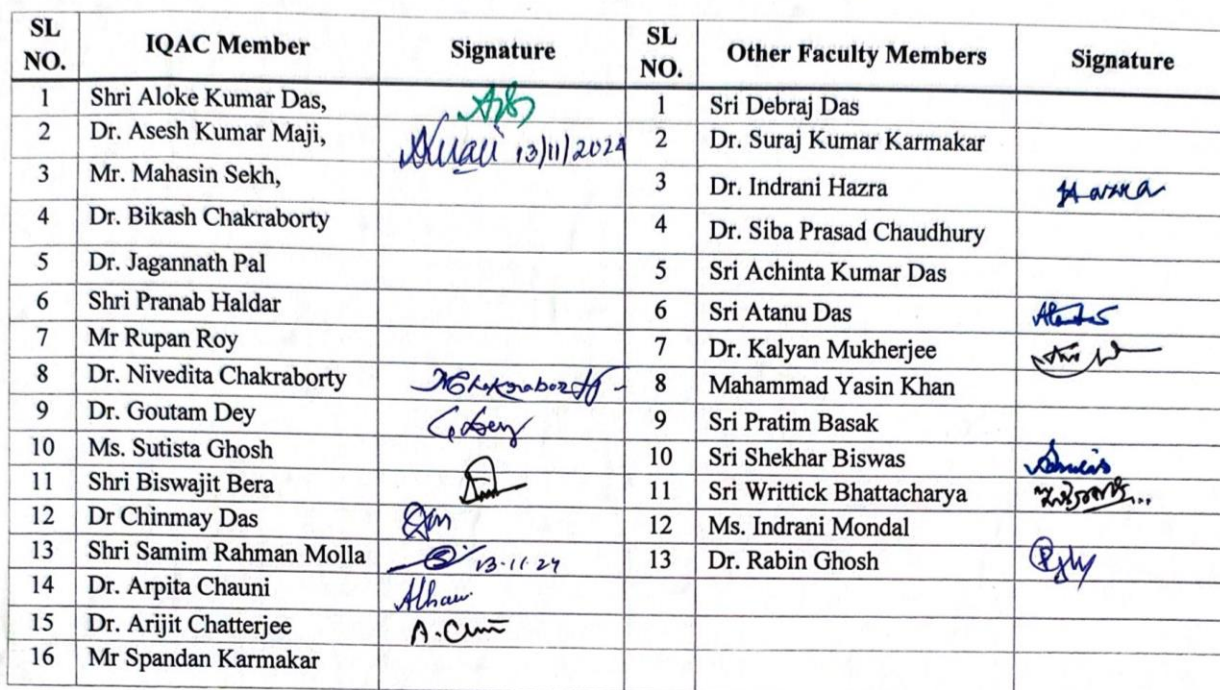 SL NO. IQAC Member Signature SL NO. Other Faculty Members Signature
1 Shri Aloke Kumar Das, 1 Sri Debraj Das
2 Dr. Asesh Kumar Maji, 13/11/2024 2 Dr. Suraj Kumar Karmakar
3 Mr. Mahasin Sekh, 3 Dr. Indrani Hazra Hazra
4 Dr. Bikash Chakraborty 4 Dr. Siba Prasad Chaudhury
5 Dr. Jagannath Pal 5 Sri Achinta Kumar Das
6 Shri Pranab Haldar 6 Sri Atanu Das
7 Mr Rupan Roy 7 Dr. Kalyan Mukherjee
8 Dr. Nivedita Chakraborty NChakraborty 8 Mahammad Yasin Khan
9 Dr. Goutam Dey G. Dey 9 Sri Pratim Basak
10 Ms. Sutista Ghosh 10 Sri Shekhar Biswas
11 Shri Biswajit Bera 11 Sri Writtick Bhattacharya
12 Dr Chinmay Das 12 Ms. Indrani Mondal
13 Shri Samim Rahman Molla 13-11-24 13 Dr. Rabin Ghosh
14 Dr. Arpita Chauni
15 Dr. Arijit Chatterjee
16 Mr Spandan Karmakar